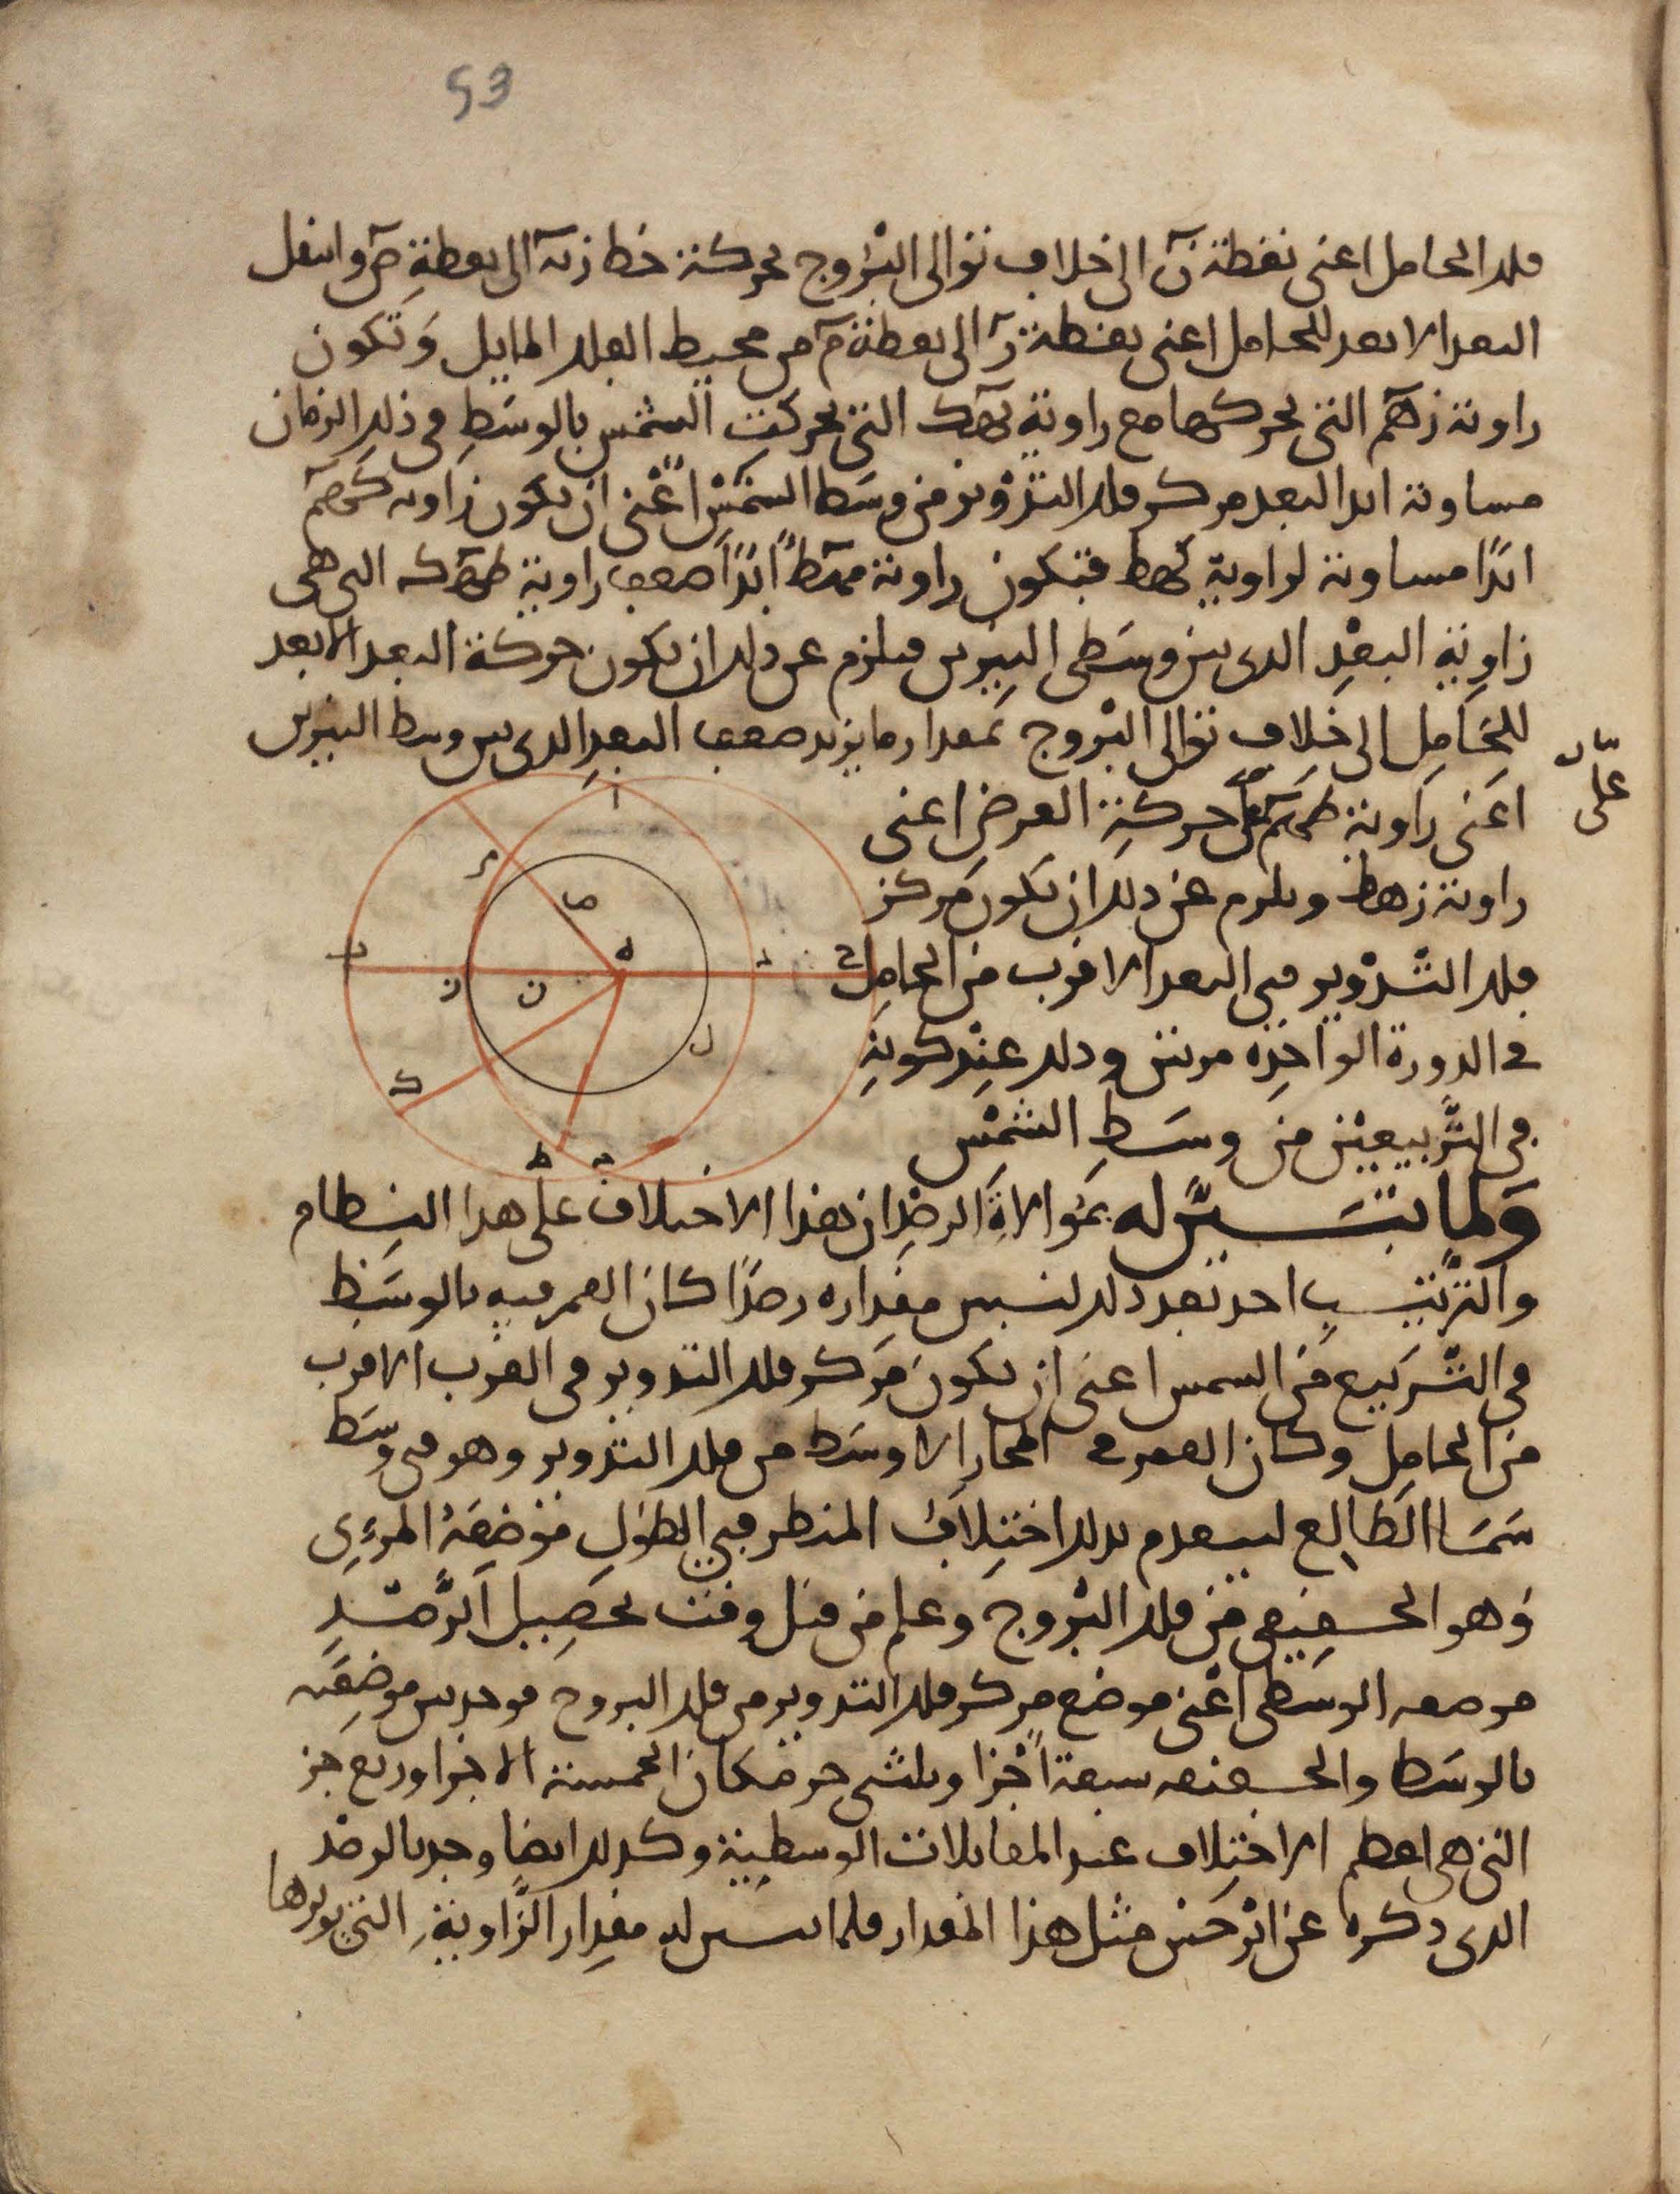 53
فلك الحامل اعنى نقطة ن الى خلاف توالى البروج بحركة خط زنه الى نقطة ص وانتقل
البعد الابعد للحامل اعنى نقطة ز الى نقطة م من محيط الفلك المايل وتكون
زاوية زهم التى تحركها مع زاوية بهك التى تحركت الشمس بالوسط فى ذلك الزمان
مساوية ابدا لبعد مركز فلك التدوير من وسط الشمس اعنى ان تكون زاوية كهم
ابدًا مساوية لزاوية كهط فتكون زاوية مهط ابدًا ضعف زاوية طهك التى هى
زاوية البعد الذى بين وسطى النيرين فيلزم عن ذلك ان تكون حركة البعد الابعد
للحامل الى خلاف توالى البروج بمقدار ما يزيد ضعف البعد الذى بين وسط النيرين
اعنى زاوية طهم على حركة العرض اعنى
على
زاوية زهط ويلزم عن ذلك ان يكون مركز
فلك التدوير فى البعد الاقرب من الحامل
فى الدورة الواحدة مرتين وذلك عند كونه
فى التربيعين من وسط الشمس
ا
م
ص
ه
ب
ز
ن
د
ح
ل
ك
ط
ج
ولما تبين له بموالاة الرصد ان هذا الاختلاف على هذا النظام
والترتيب احد بعد ذلك لتبين مقداره رصدًا كان القمر فيه بالوسط
فى التربيع من الشمس اعنى ان يكون مركز فلك التدوير فى القرب الاقرب
من الحامل وكان القمر فى المجاز الاوسط من فلك التدوير وهو فى وسط
سما الطالع لينعدم بذلك اختلاف المنظر فى الطول فموضعه المرءى
وهو الحقيقى من فلك البروج وعلم من قبل وقت تحصيل الرصد
موضعه الوسطى اعنى موضع مركز فلك التدوير من فلك البروج فوجد بين موضعه
بالوسط والحقيقه سبعة اجزا وثلثى جز مكان الخمسة الاجزا وربع جز
التى هى اعظم الاختلاف عند المقابلات الوسطية وكذلك ايضا وجد بالرصد
الذى ذكره عن ابرخس مثل هذا المقدار فلما تبين له مقدار الزاوية التى يوترها